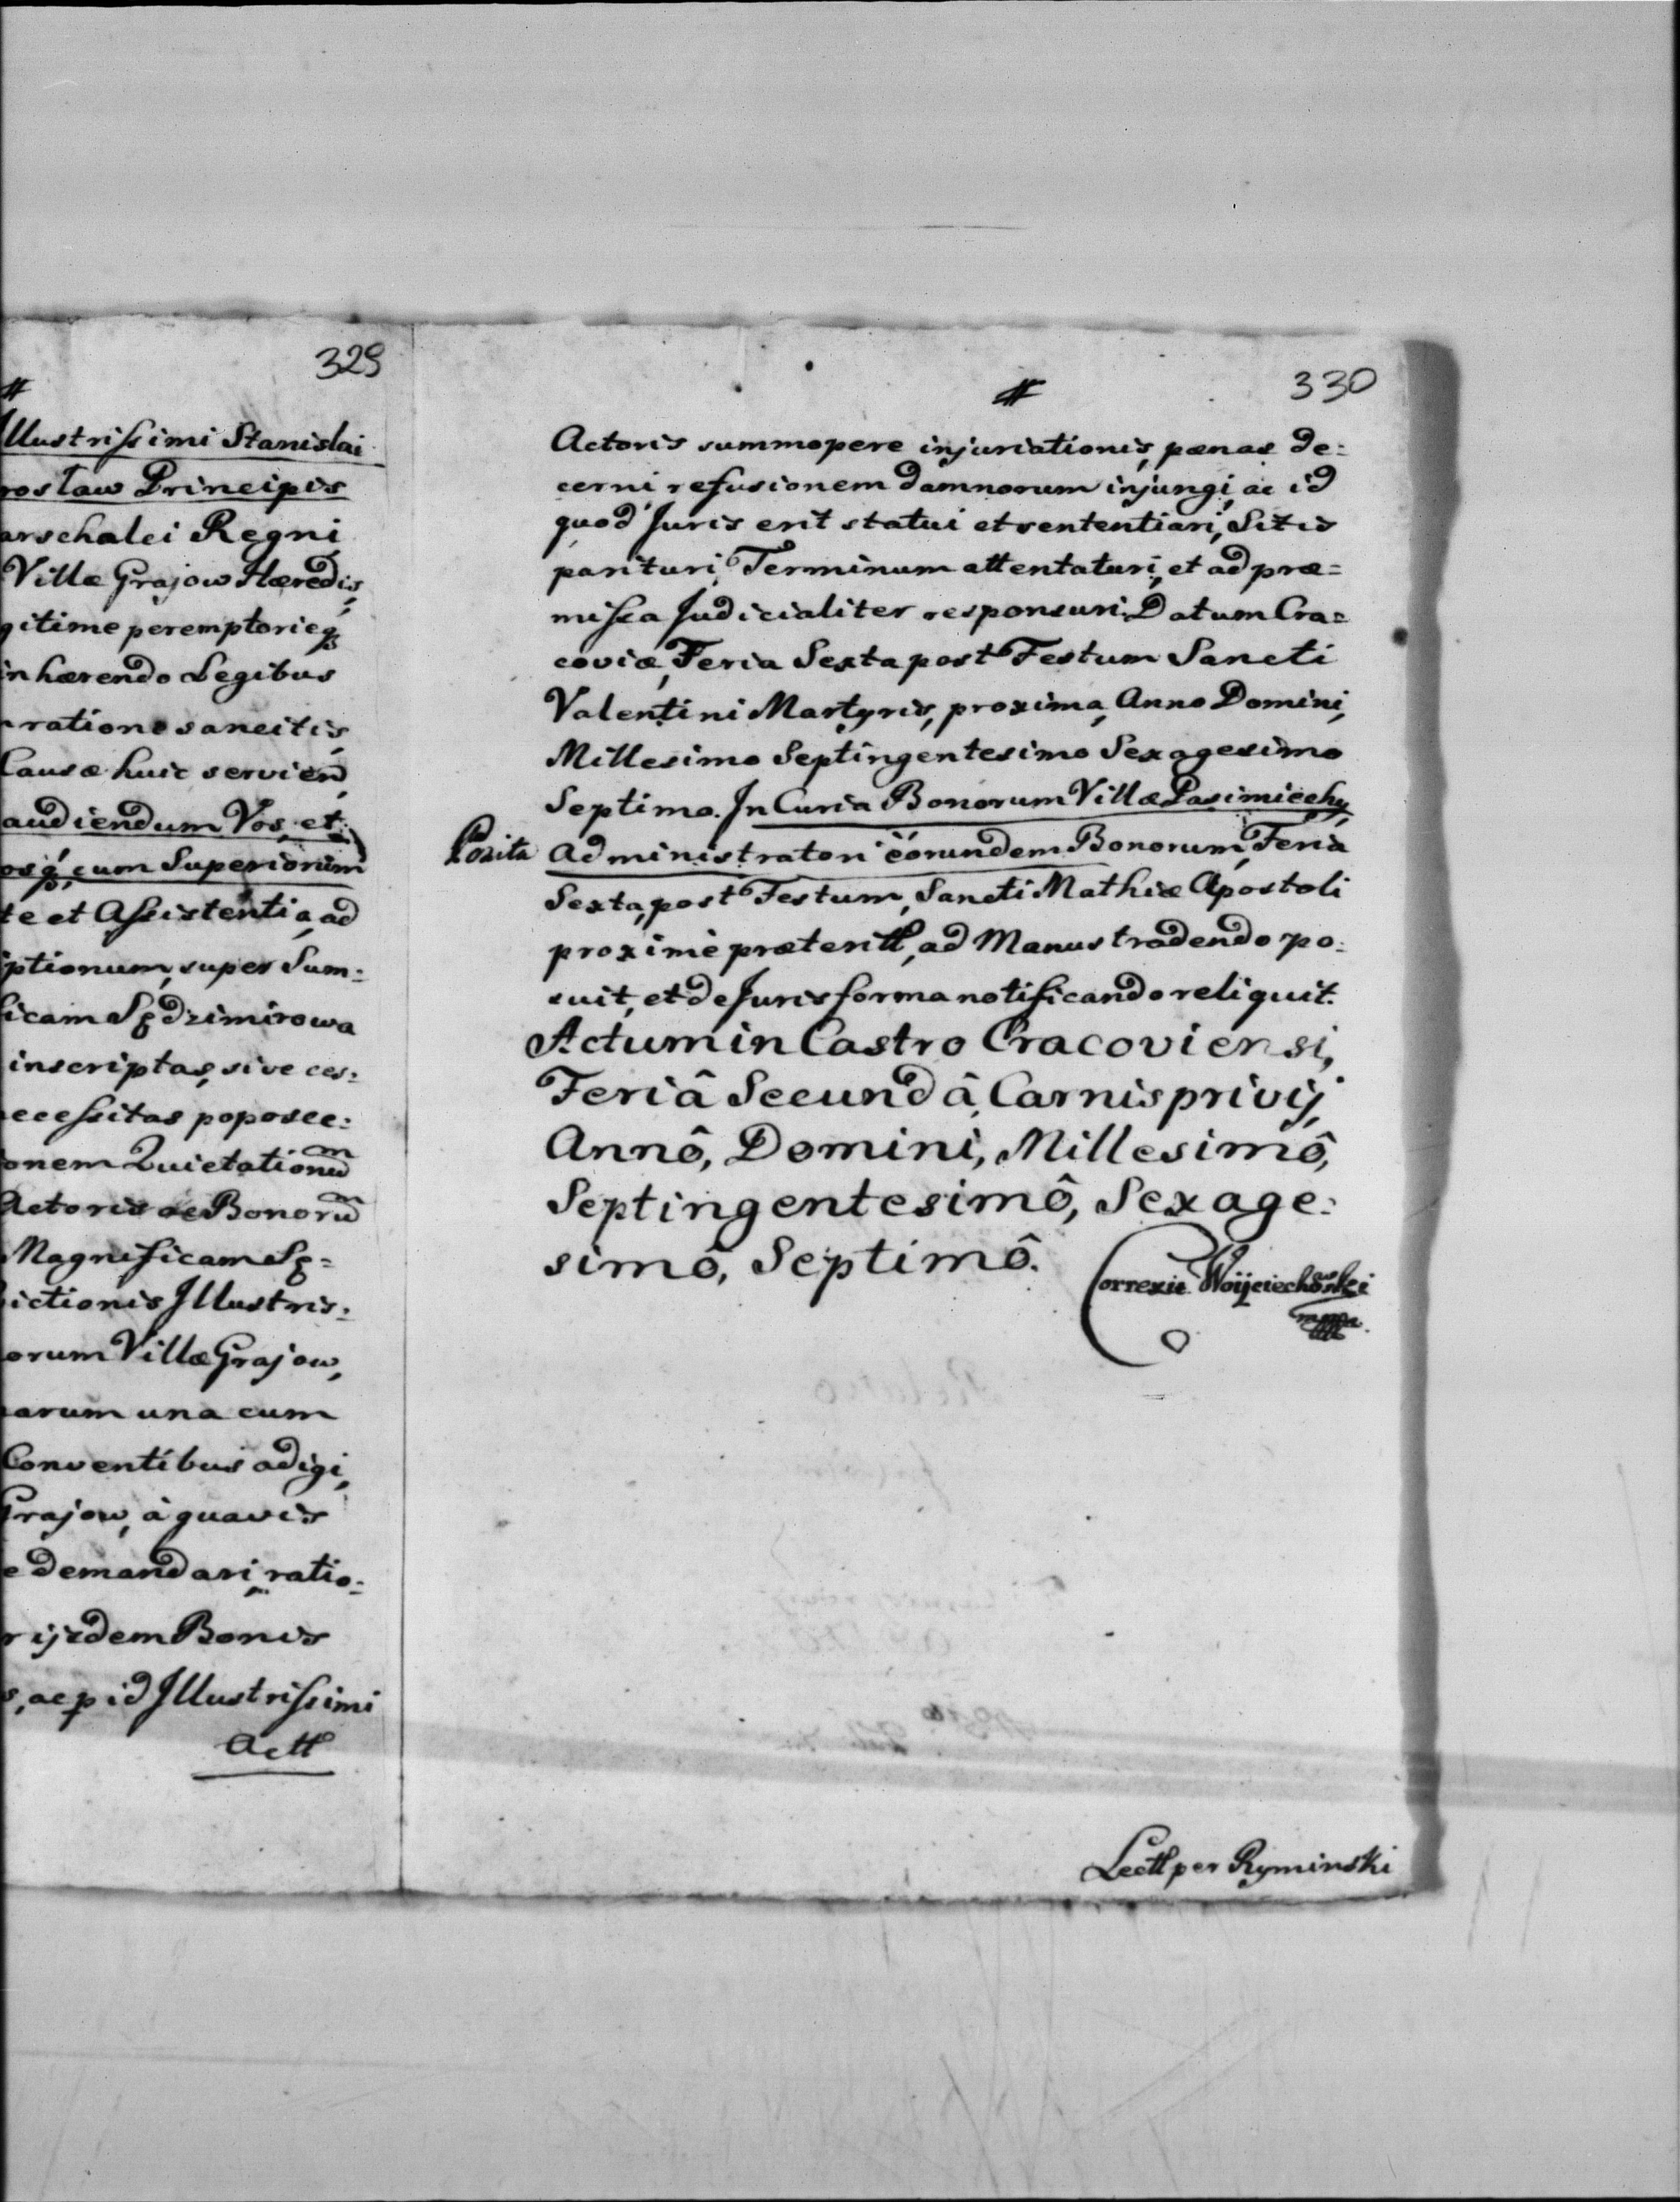 329
#
Illustrissimi Stanislai
rosław Principis
arschalci Regni
Villæ Grajow Hæredis,
gitime peremptorieq;
inhærendo Legibus
ratione sancitis,
Causæ huic servien,
audiendum Vos, et
osq;, cum Superiorum
te et Assistentia, ad
iptionum, super Sum:
ficam Sędzimirowa
inscriptas, sive ces:
ecessitas poposce:
onem Quietationū
Actoris ac Bonorū
Magnificam Sę=
ictionis Illustris:
orum Villæ Grajow,
arum una cum
Conventibus adigi,
Grajow, à quavis
e demandari, ratio:
r ijsdem Bonis
s, ac p id Illustrissimi
Actt
330
#
Actoris summopere injuriationis, pænas de:
cerni refusionem damnorum injungi, ac id
quod Juris erit statui et sententiari, Sitis
parituri, Terminum attentaturi, et ad præ=
missa Judicialiter responsuri. Datum Cra=
coviæ, Feria Sexta post Festum Sancti
Valentini Martyris, proxima, Anno Domini,
Millesimo Septingentesimo Sexagesimo
Septimo. In Curia Bonorum Villæ Pasimiechy,
Posita Administratori eorundem Bonorum, Feria
Sexta, post Festum, Sancti Mathiæ Apostoli
proximè præteritt, ad Manus tradendo po:
suit, et de Juris forma notificando reliquit.
Actum in Castro Cracoviensi,
Feriâ Secundâ, Carnisprivij,
Annô, Domini, Millesimô,
Septingentesimô, Sexage:
simô, Septimô.
Correxit Woyciechowski
mppa.
Lectt per Ryminski